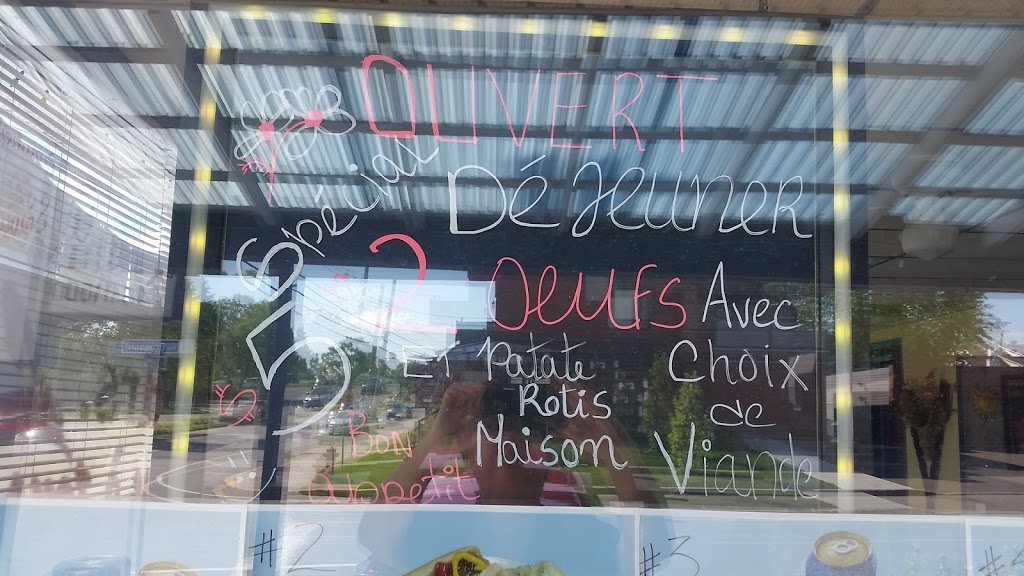 OUVERT
Spécial
DéJeuner
5$
2 OEUFS Avec
ET Patate Choix
Rotis de
Maison Viande
BON
Appetit
#2
#3